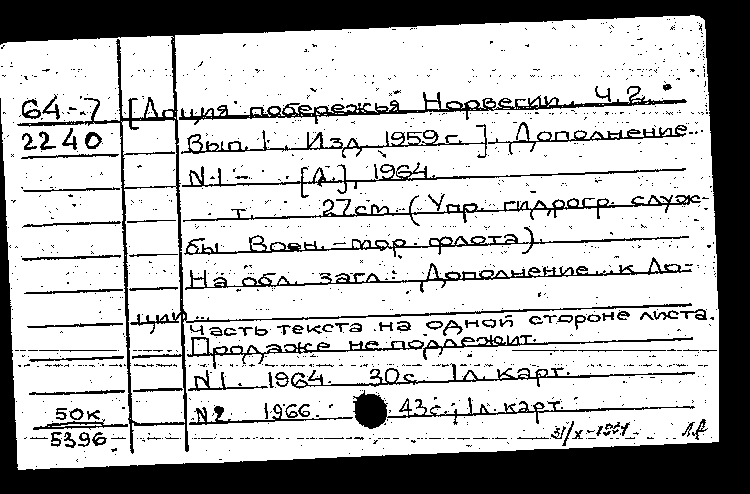 64-7 [Лоция побережья Норвегии. Ч.2.
2240 Вып. 1. Изд. 1959 г.]. Дополнение...
N.1 - [Л.], 1964.
т. 27 cm. (Упр. гидрогр. служ-
бы Воен.-мор. флота).
На обл. загл.: Дополнение... к Ло-
ции...
Часть текста на одной стороне листа.
Продаже не подлежит.
N1. 1964. 30 с. 1 л. карт.
50к N2 1966. 43 с.; 1 л. карт.
5396